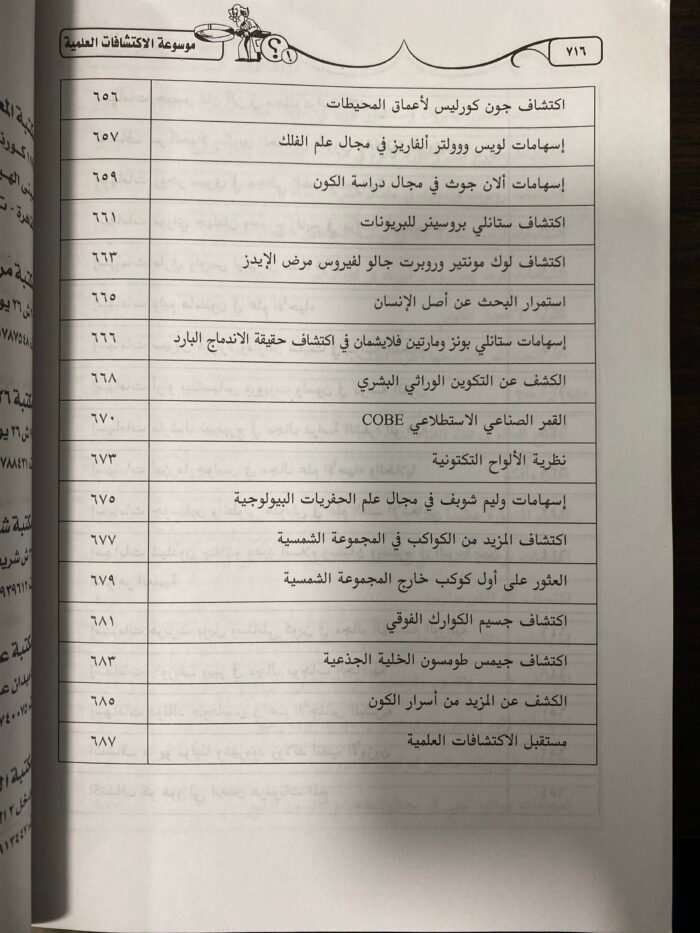 موسوعة الاكتشافات العلمية
٧١٦
اكتشاف جون كورليس لأعماق المحيطات ٦٥٦
إسهامات لويس ووولتر ألفاريز في مجال علم الفلك ٦٥٧
إسهامات ألان جوث في مجال دراسة الكون ٦٥٩
اكتشاف ستانلي بروسينر للبريونات ٦٦١
اكتشاف لوك مونتير وروبرت جالو لفيروس مرض الإيدز ٦٦٣
استمرار البحث عن أصل الإنسان ٦٦٥
إسهامات ستانلي بونز ومارتين فلايشمان في اكتشاف حقيقة الاندماج البارد ٦٦٦
الكشف عن التكوين الوراثي البشري ٦٦٨
القمر الصناعي الاستطلاعي COBE ٦٧٠
نظرية الألواح التكتونية ٦٧٣
إسهامات وليم شوبف في مجال علم الحفريات البيولوجية ٦٧٥
اكتشاف المزيد من الكواكب في المجموعة الشمسية ٦٧٧
العثور على أول كوكب خارج المجموعة الشمسية ٦٧٩
اكتشاف جسيم الكوارك الفوقي ٦٨١
اكتشاف جيمس طومسون الخلية الجذعية ٦٨٣
الكشف عن المزيد من أسرار الكون ٦٨٥
مستقبل الاكتشافات العلمية ٦٨٧